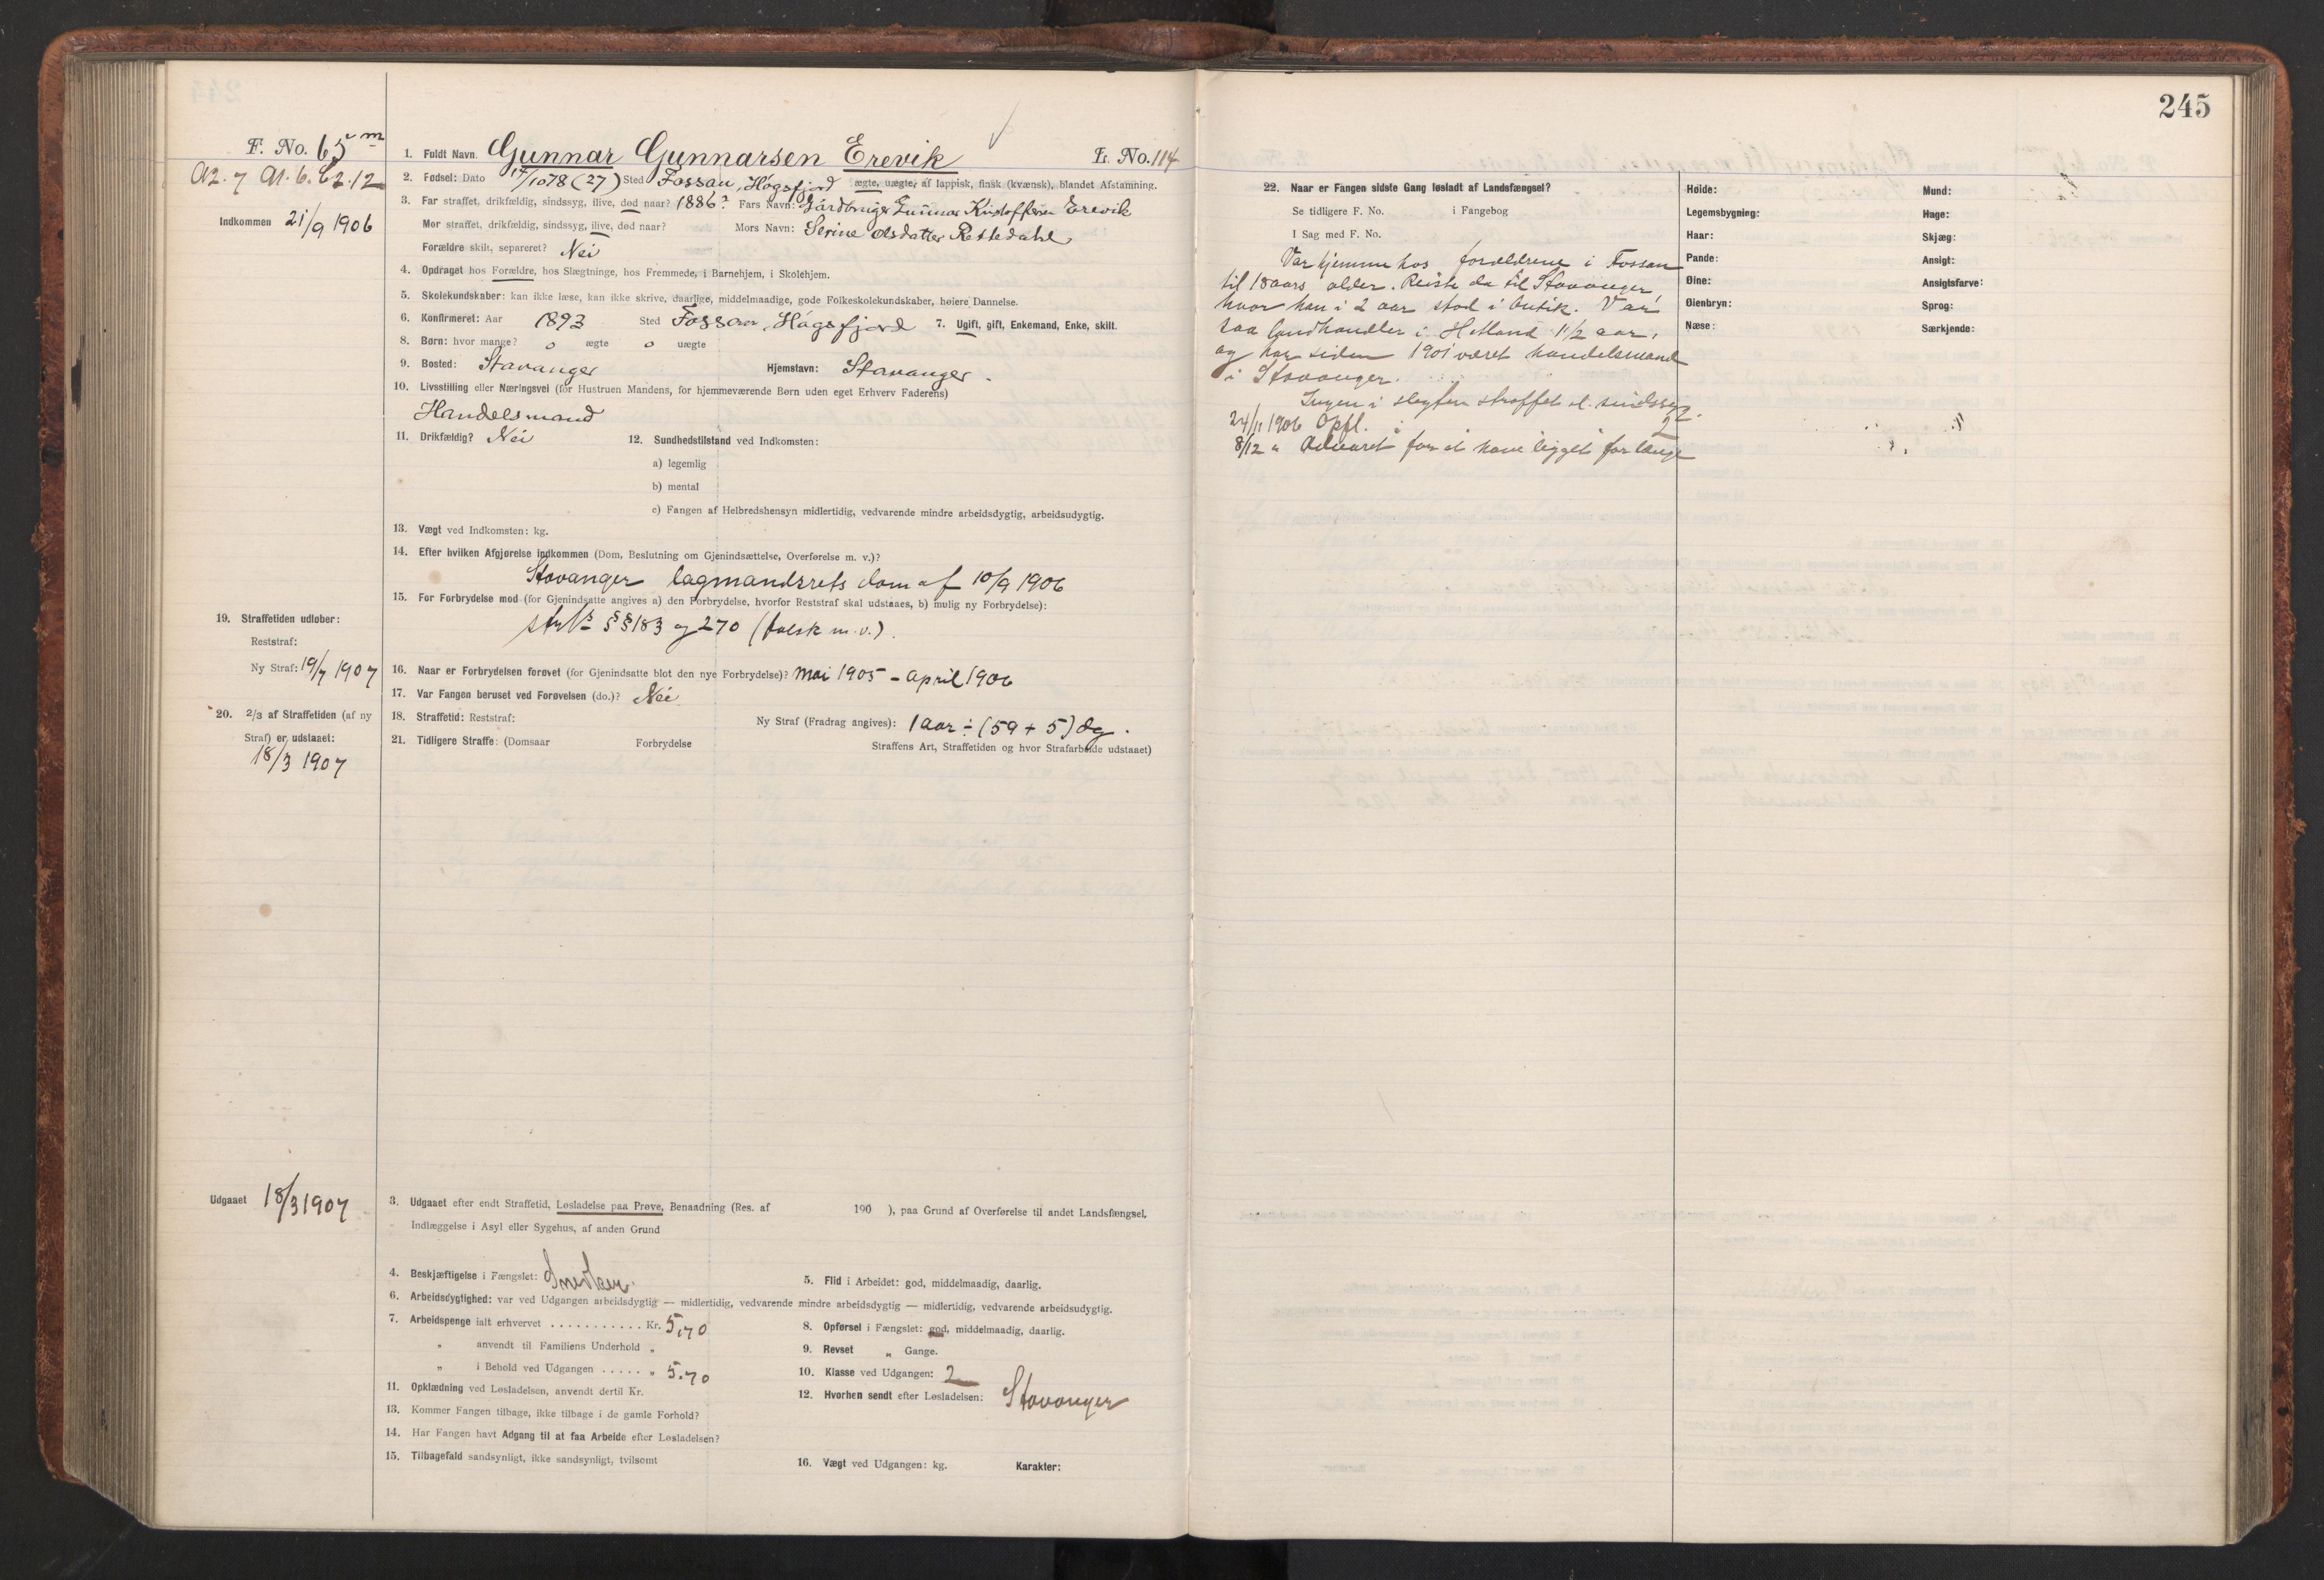 245
F. No. 65 m
A2. 7 A1. 6. C2. 12
Indkommen 21/9 1906
1. Fuldt Navn. Gunnar Gunnarsen Erevik L. No. 114
2. Fødsel: Dato 17/10 78 (27) Sted Fossan, Høgsfjord ægte, uægte, af lappisk, finsk (kvænsk), blandet Afstamning.
3. Far straffet, drikfældig, sindssyg, ilive, død naar? 1886? Fars Navn: Gårdbruger Gunnar Kristoffersen Erevik
Mor straffet, drikfældig, sindssyg, ilive, død naar? Mors Navn: Serine Olsdatter Rettedahl
Forældre skilt, separeret? Nei
4. Opdraget hos Forældre, hos Slægtninge, hos Fremmede, i Barnehjem, i Skolehjem.
5. Skolekundskaber: kan ikke læse, kan ikke skrive, daarlige, middelmaadige, gode Folkeskolekundskaber, høiere Dannelse.
6. Konfirmeret: Aar 1893 Sted Fossan, Høgsfjord 7. Ugift, gift, Enkemand, Enke, skilt.
8. Børn: hvor mange? 0 ægte 0 uægte
9. Bosted: Stavanger Hjemstavn: Stavanger.
10. Livsstilling eller Næringsvei (for Hustruen Mandens, for hjemmeværende Børn uden eget Erhverv Faderens)
Handelsmand
11. Drikfældig? Nei 12. Sundhedstilstand ved Indkomsten:
a) legemlig
b) mental
c) Fangen af Helbredshensyn midlertidig, vedvarende mindre arbeidsdygtig, arbeidsudygtig.
13. Vægt ved Indkomsten: kg.
14. Efter hvilken Afgjørelse indkommen (Dom, Beslutning om Gjenindsættelse, Overførelse m. v.)?
Stavanger lagmandsrets dom af 10/9 1906
15. For Forbrydelse mod (for Gjenindsatte angives a) den Forbrydelse, hvorfor Reststraf skal udstaaes, b) mulig ny Forbrydelse):
§§ 183 og 270 (falsk m.v.).
19. Straffetiden udløber:
Reststraf:
Ny Straf: 19/7 1907
16. Naar er Forbrydelsen forøvet (for Gjenindsatte blot den nye Forbrydelse)? Mai 1905 - april 1906
17. Var Fangen beruset ved Forøvelsen (do.)? Nei
20. 2/3 af Straffetiden (af ny
Straf) er udstaaet:
18/3 1907
18. Straffetid: Reststraf: Ny Straf (Fradrag angives): 1 aar ÷ (59 + 5) dg.
21. Tidligere Straffe: (Domsaar Forbrydelse Straffens Art, Straffetiden og hvor Strafarbeide udstaaet)
Udgaaet 18/3 1907
3. Udgaaet efter endt Straffetid, Løsladelse paa Prøve, Benaadning (Res. af 190 ), paa Grund af Overførelse til andet Landsfængsel,
Indlæggelse i Asyl eller Sygehus, af anden Grund
4. Beskjæftigelse i Fængslet: Snedker. 5. Flid i Arbeidet: god, middelmaadig, daarlig.
6. Arbeidsdygtighed: var ved Udgangen arbeidsdygtig — midlertidig, vedvarende mindre arbeidsdygtig — midlertidig, vedvarende arbeidsudygtig.
7. Arbeidspenge ialt erhvervet . . . . . . . . . . . Kr. 5,70 8. Opførsel i Fængslet: god, middelmaadig, daarlig.
" anvendt til Familiens Underhold " 9. Revset " Gange.
" i Behold ved Udgangen . . . . . " 5.70 10. Klasse ved Udgangen: 2
11. Opklædning ved Løsladelsen, anvendt dertil Kr. 12. Hvorhen sendt efter Løsladelsen: Stavanger
13. Kommer Fangen tilbage, ikke tilbage i de gamle Forhold?
14. Har Fangen havt Adgang til at faa Arbeide efter Løsladelsen?
15. Tilbagefald sandsynligt, ikke sandsynligt, tvilsomt 16. Vægt ved Udgangen: kg. Karakter:
22. Naar er Fangen sidste Gang løsladt af Landsfængsel?
Se tidligere F. No. i Fangebog
I Sag med F. No.
Var hjemme hos forældrene i Fossan
til 18 aars alder. Reiste da til Stavanger
hvor han i 2 aar stod i butik. Var
saa landhandler i Hetland 1 1/2 aar,
og har siden 1901 været handelsmand
i Stavanger.
Ingen i slegten straffet el. sindssyg.
24/11 1906 Opfl. 2
8/12 " Advaret for at have ligget for længe
Høide: Mund:
Legemsbygning: Hage:
Haar: Skjæg:
Pande: Ansigt:
Øine: Ansigtsfarve:
Øienbryn: Sprog:
Næse: Særkjende: